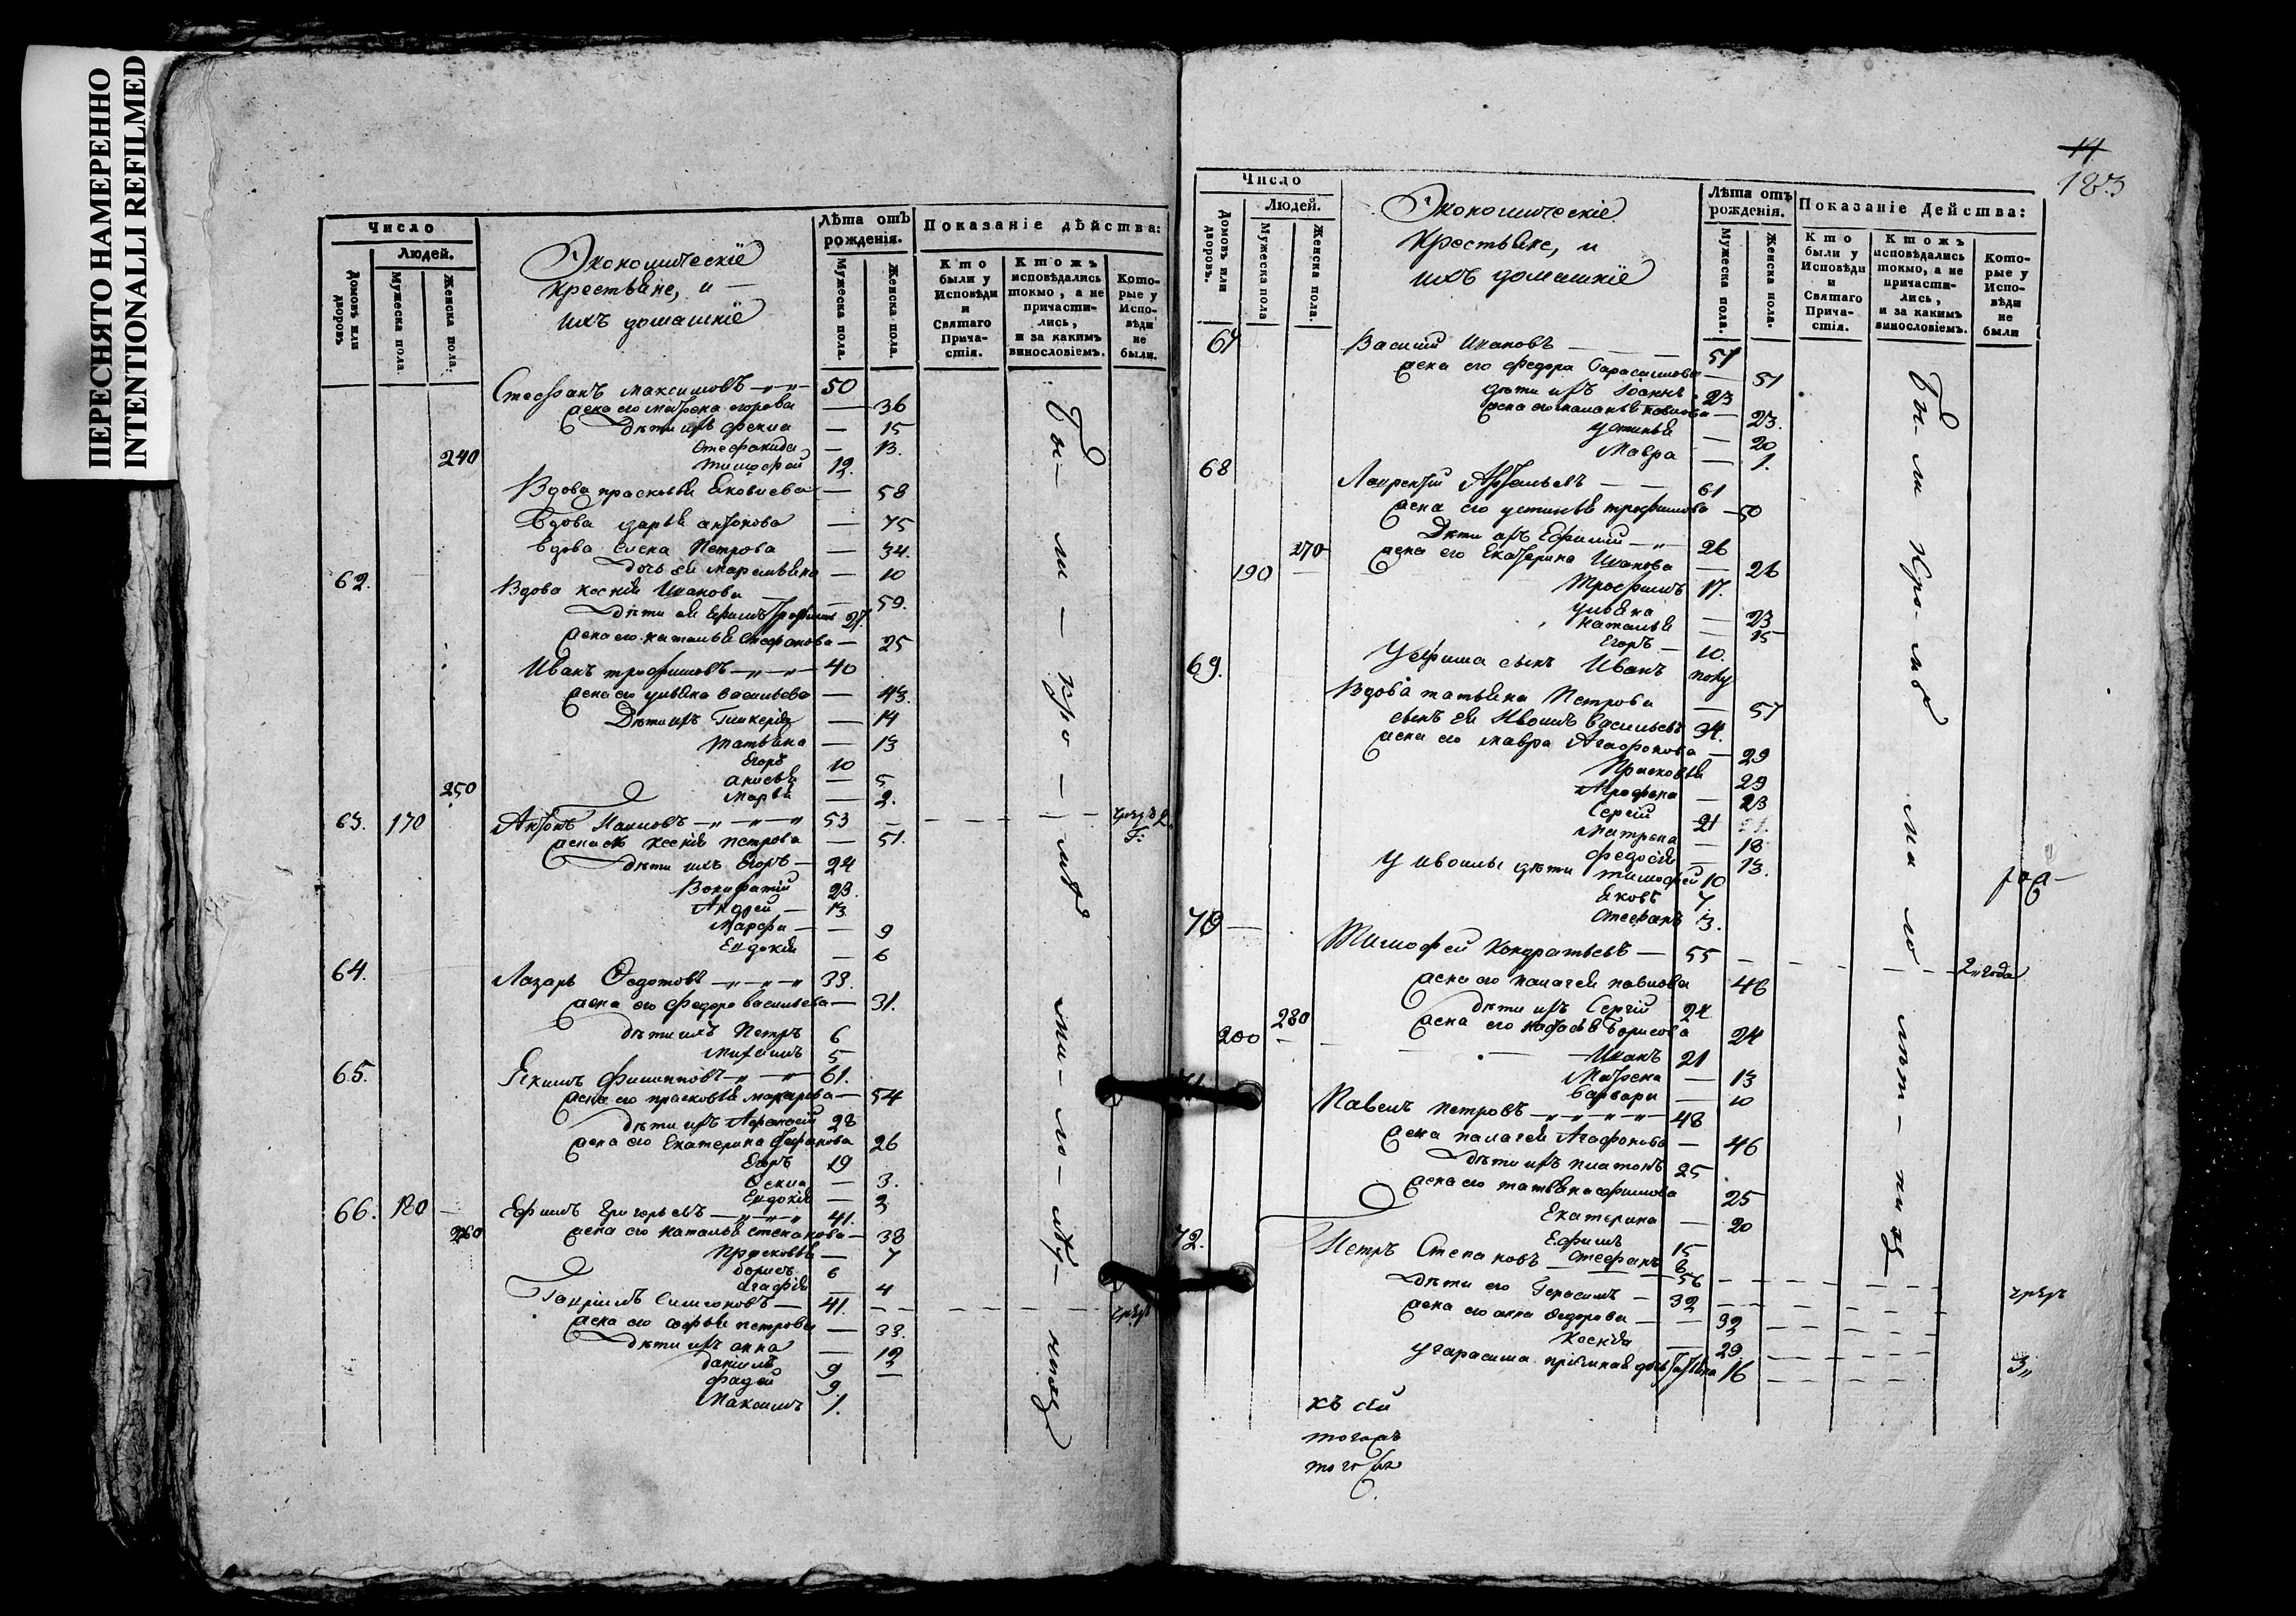 ПЕРЕСНЯТО НАМЕРЕННО
INTENTIONALLI REFILMED
Число
Людей.
Домовъ или дворовъ
Мужеска пола.
Женска пола.
Экономическіе
Крестьяне, и —
ихъ домашніе
Лѣта отъ рожденія.
Мужеска пола.
Женска пола.
Показаніе дѣйства:
Кто были у Исповѣди и Святаго Прича-стія.
Ктожъ исповѣдались токмо, а не причасти-лись, и за какимъ винословіемъ.
Кото-рые у Испо-вѣди не были.
Стефанъ Максимовъ 50
жена его Матрена Егорова — 36
дѣти ихъ Фекла — 15
240 Стефанида — 13.
Тимофей 12.
Вдова Прасковья Яковлева — 58
Вдова Дарья Антонова — 75
Вдова Петрова — 34.
дочь ея Маремьяна — 10
62. Вдова Ксенія Иванова — 59.
дѣти ея Ефимъ Трофимовъ 27.
жена его Наталья Стефанова — 25
Иванъ Трофимовъ 40
жена его Ульяна Васильева — 43.
Дѣти ихъ Гликерія — 14
Татьяна — 13
Егоръ 10
250 Анисья — 5
Марья — 2.
63. 170 Антонъ Павловъ 53
жена его Ксенія Петрова — 51.
дѣти ихъ Егоръ — 24
Вонифатій 23.
Андрей — 13
Марфа — 9
Евдокія — 6
64. Лазарь Ѳедотовъ 33.
жена его Федора Васильева — 31.
дѣти ихъ Петръ 6
Михаилъ 5
65. Якимъ Филипповъ 61.
жена его Прасковья Макарова — 54
дѣти ихъ Афанасій 28
жена его Екатерина Стефанова 26
Егоръ 19
Ѳекла — 3.
Евдокія — 2
66. 180 Ефимъ Григорьевъ 41.
260 жена его Наталья Степанова — 38
Прасковья — 7
Борисъ 6
Агафія — 4
Гавріилъ Симеоновъ — 41.
жена его Софья Петрова — 33.
дѣти ихъ Анна — 12
Даніилъ 9
Фадей 9
Максимъ 1.
Бы- ли — кро — мѣ
ма- ло- лѣт- ныхъ
14
183
Число
Людей.
Домовъ или дворовъ.
Мужеска пола
Женска пола.
Экономическіе
Крестьяне, и
ихъ домашніе
Лѣта отъ рожденія.
Мужеска пола.
Женска пола.
Показаніе Действа:
Кто были у Исповѣди и Святаго Прича-стія.
Ктожъ исповѣдались токмо, а не причасти-лись, и за какимъ винословіемъ.
Кото-рые у Испо-вѣди не были
67 Василій Ивановъ 51
жена его Федора Гарасимова 51
дѣти ихъ Іоаннъ 23
жена его Маланья Павлова — 23.
Устинья — 20
Мавра — 1.
68 Лаврентій 61
жена его Устинья Трофимова — 50
Дѣти ихъ Ефимій 26
270 жена его Екатерина Иванова — 26
190 Трофимъ 17.
Ульяна — 23
Наталья — 15
Егоръ — 10.
69. У Ефима сынъ Иванъ полу
Вдова Татьяна Петрова — 57
сынъ ея Васильевъ 34.
жена его Мавра Агафонова — 29
Прасковья 29
23
Сергій 21
Матрена — 18
Федосія — 13.
дѣти Тимофей 10
Яковъ 7
Стефанъ 3.
70 Тимофей Кондратьевъ — 55 2 года
жена его Палагея Павлова 46
дѣти ихъ Сергій 24
280 жена его Борисова 24
200 Иванъ 21
Матрена — 13
Варвара — 10
Павелъ Петровъ 48
жена Палагея Агафонова — 46
дѣти ихъ Платонъ 25
жена его Татьяна Ефимова 25
Екатерина — 20
Ефимъ 15
Стефанъ 6
72. Петръ Степановъ 56
дѣти его Герасимъ — 32
жена его Анна Ѳедорова — 32
Ксенія — 29
У Гарасима пріемная дочь Татьяна 16
Бы- ли кро- мѣ
ма ло лѣт- ныхъ
къ сей